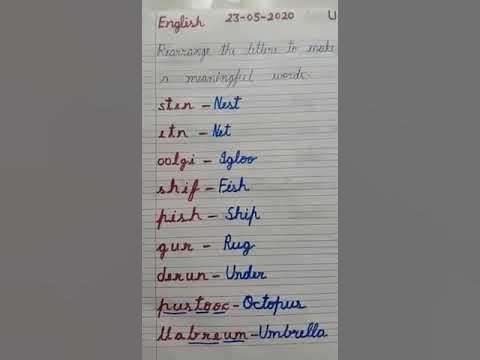 English 23-05-2020 U
Rearrange the letters to make
a meaningful words.
sten - Nest
etn - Net
oolgi - Igloo
shif - Fish
pish - Ship
gur - Rug
derun - Under
pustooc - Octopus
llabreum - Umbrella